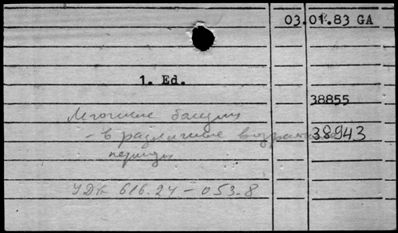 03.01.83 GA
1. Ed.
38855
Легочные
- в различные возрастные 38943
периоды
УДК 616.24-053.8